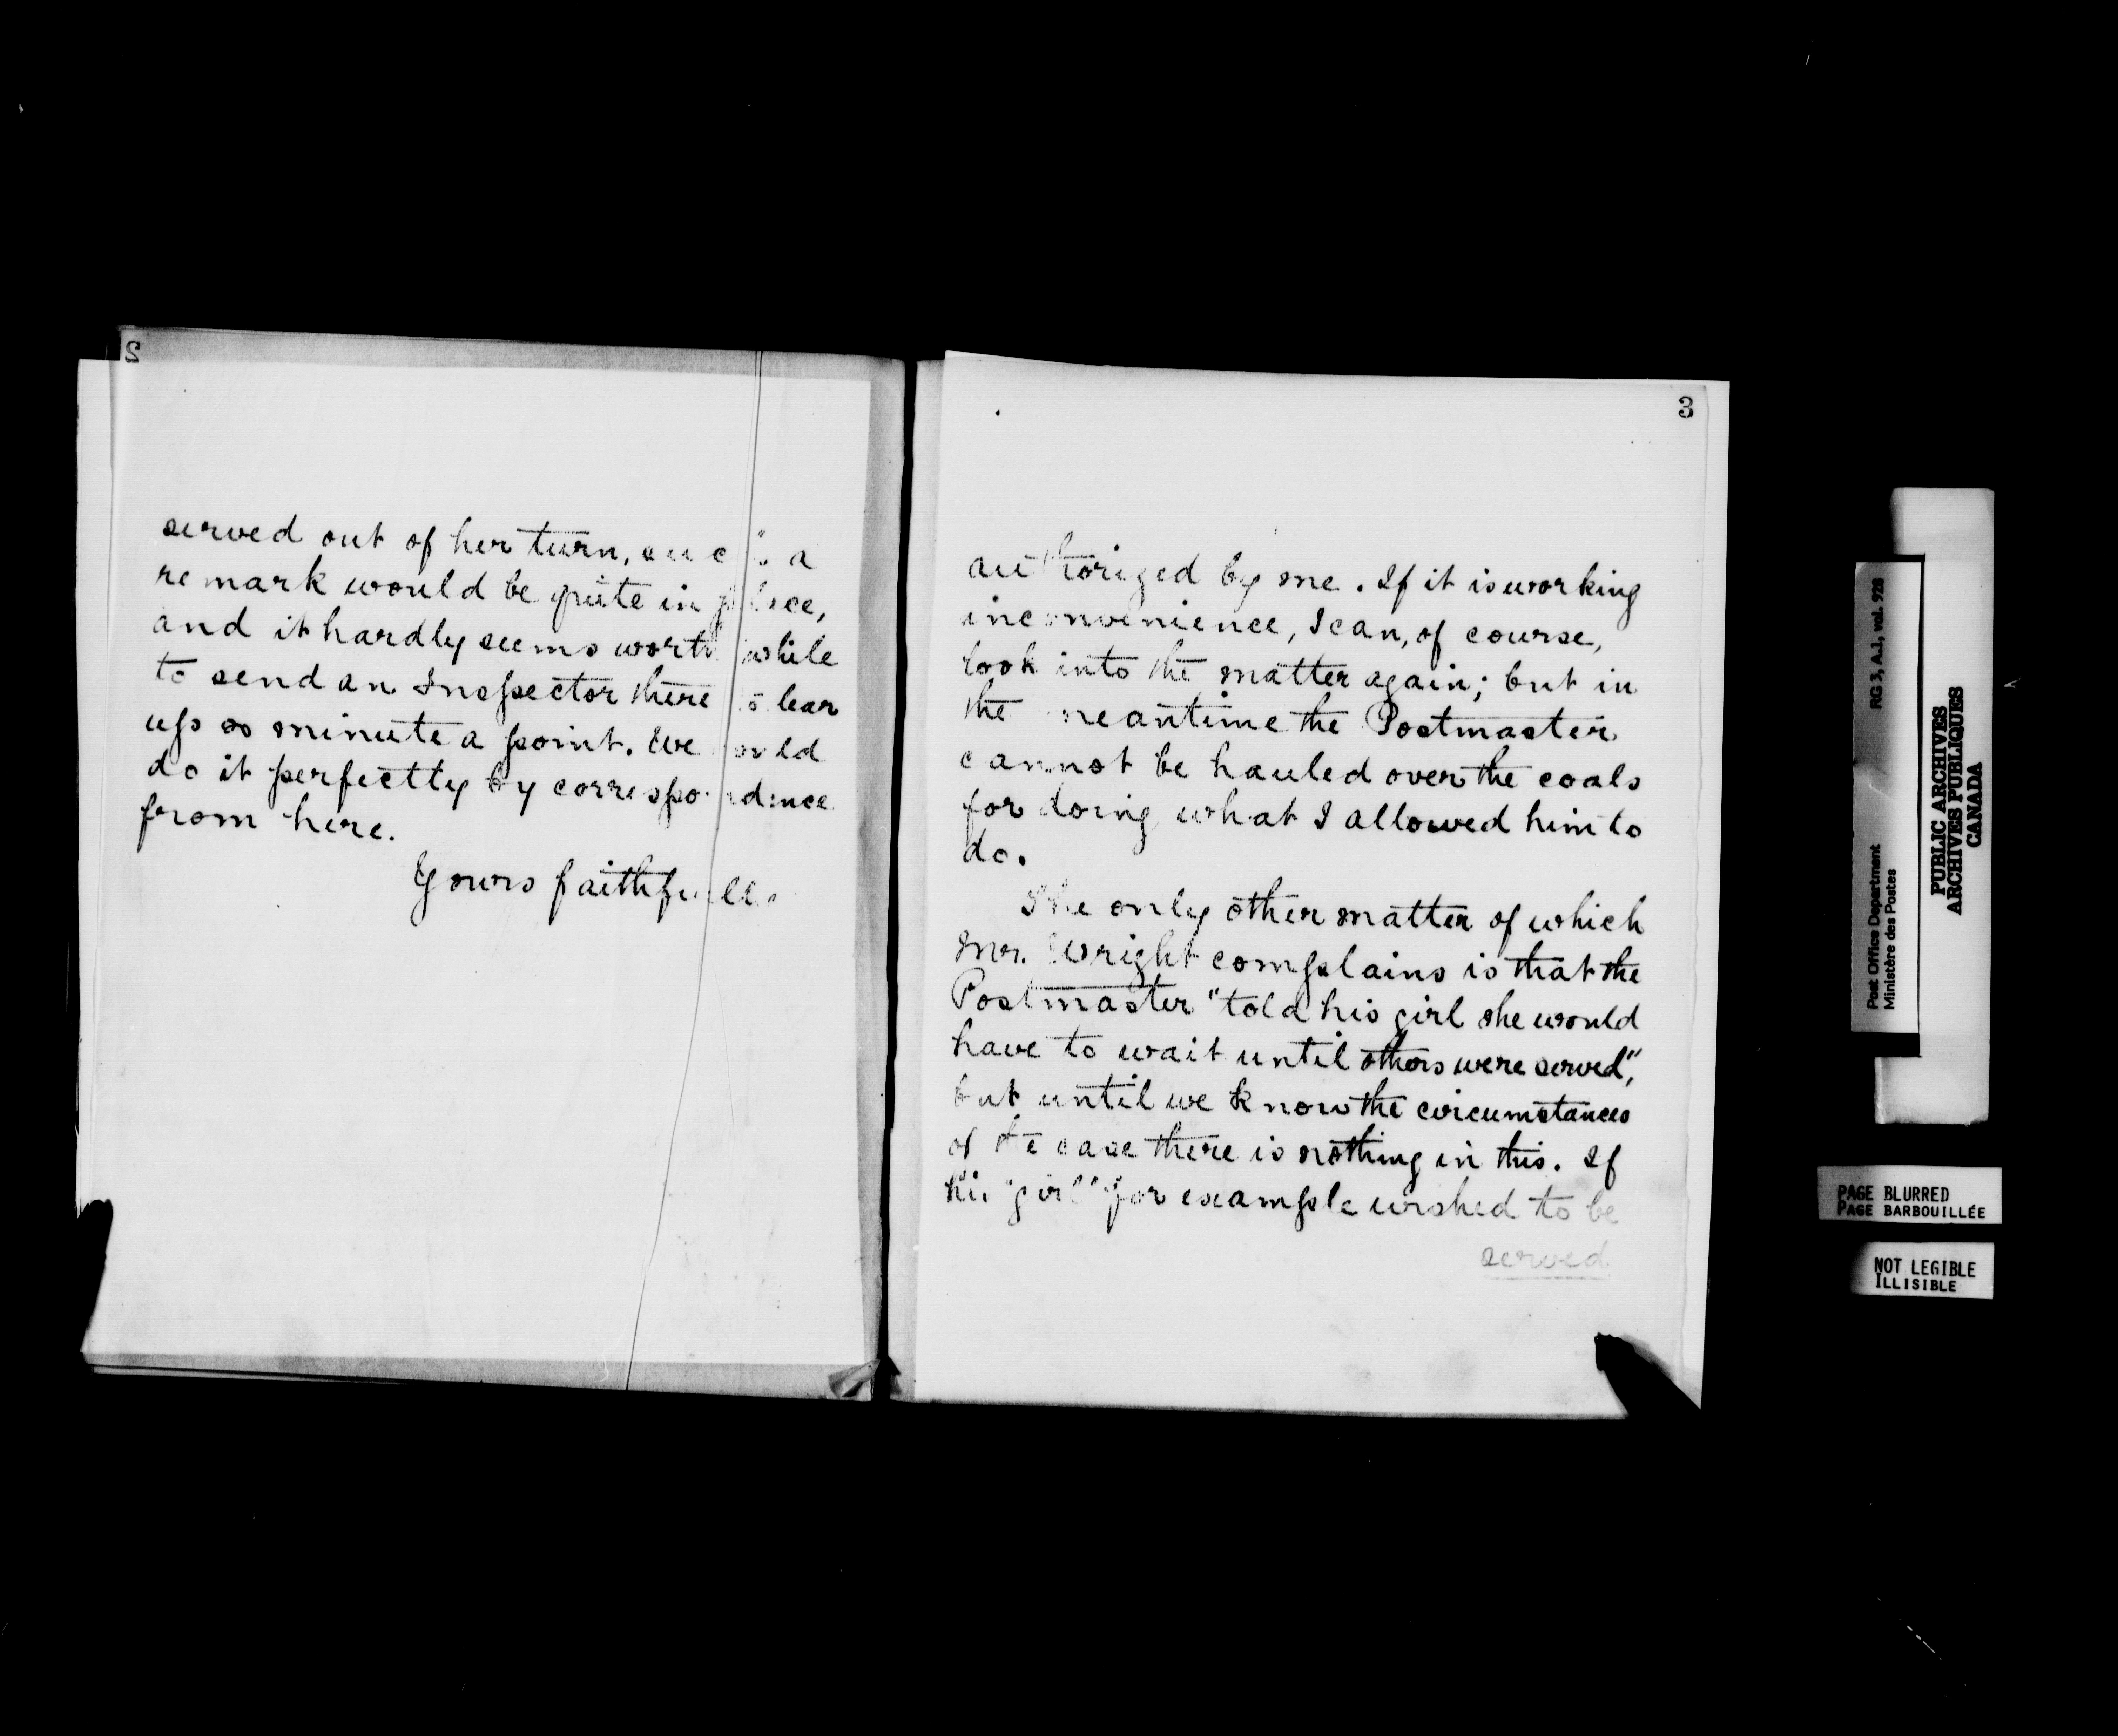 2
served out of her turn, such a
remark would be quite in place,
and it hardly seems worth while
to send an Inspector there to clear
up so minute a point. We could
do it perfectly by correspondence
from here.
Yours faithfully
3
authorized by me. If it is working
inconvenience, I can, of course,
look into the matter again; but in
the meantime the Postmaster
cannot be hauled over the coals
for doing what I allowed him to
do.
The only other matter of which
Mr. Wright complains is that the
Postmaster "told his girl she would
have to wait until others were served",
but until we know the circumstances
of the case there is nothing in this. If
his "girl" for example wished to be
served
Post Office Department RG 3, A.1, vol. 928
Ministère des Postes
PUBLIC ARCHIVES
ARCHIVES PUBLIQUES
CANADA
PAGE BLURRED
PAGE BARBOUILLÉE
NOT LEGIBLE
ILLISIBLE